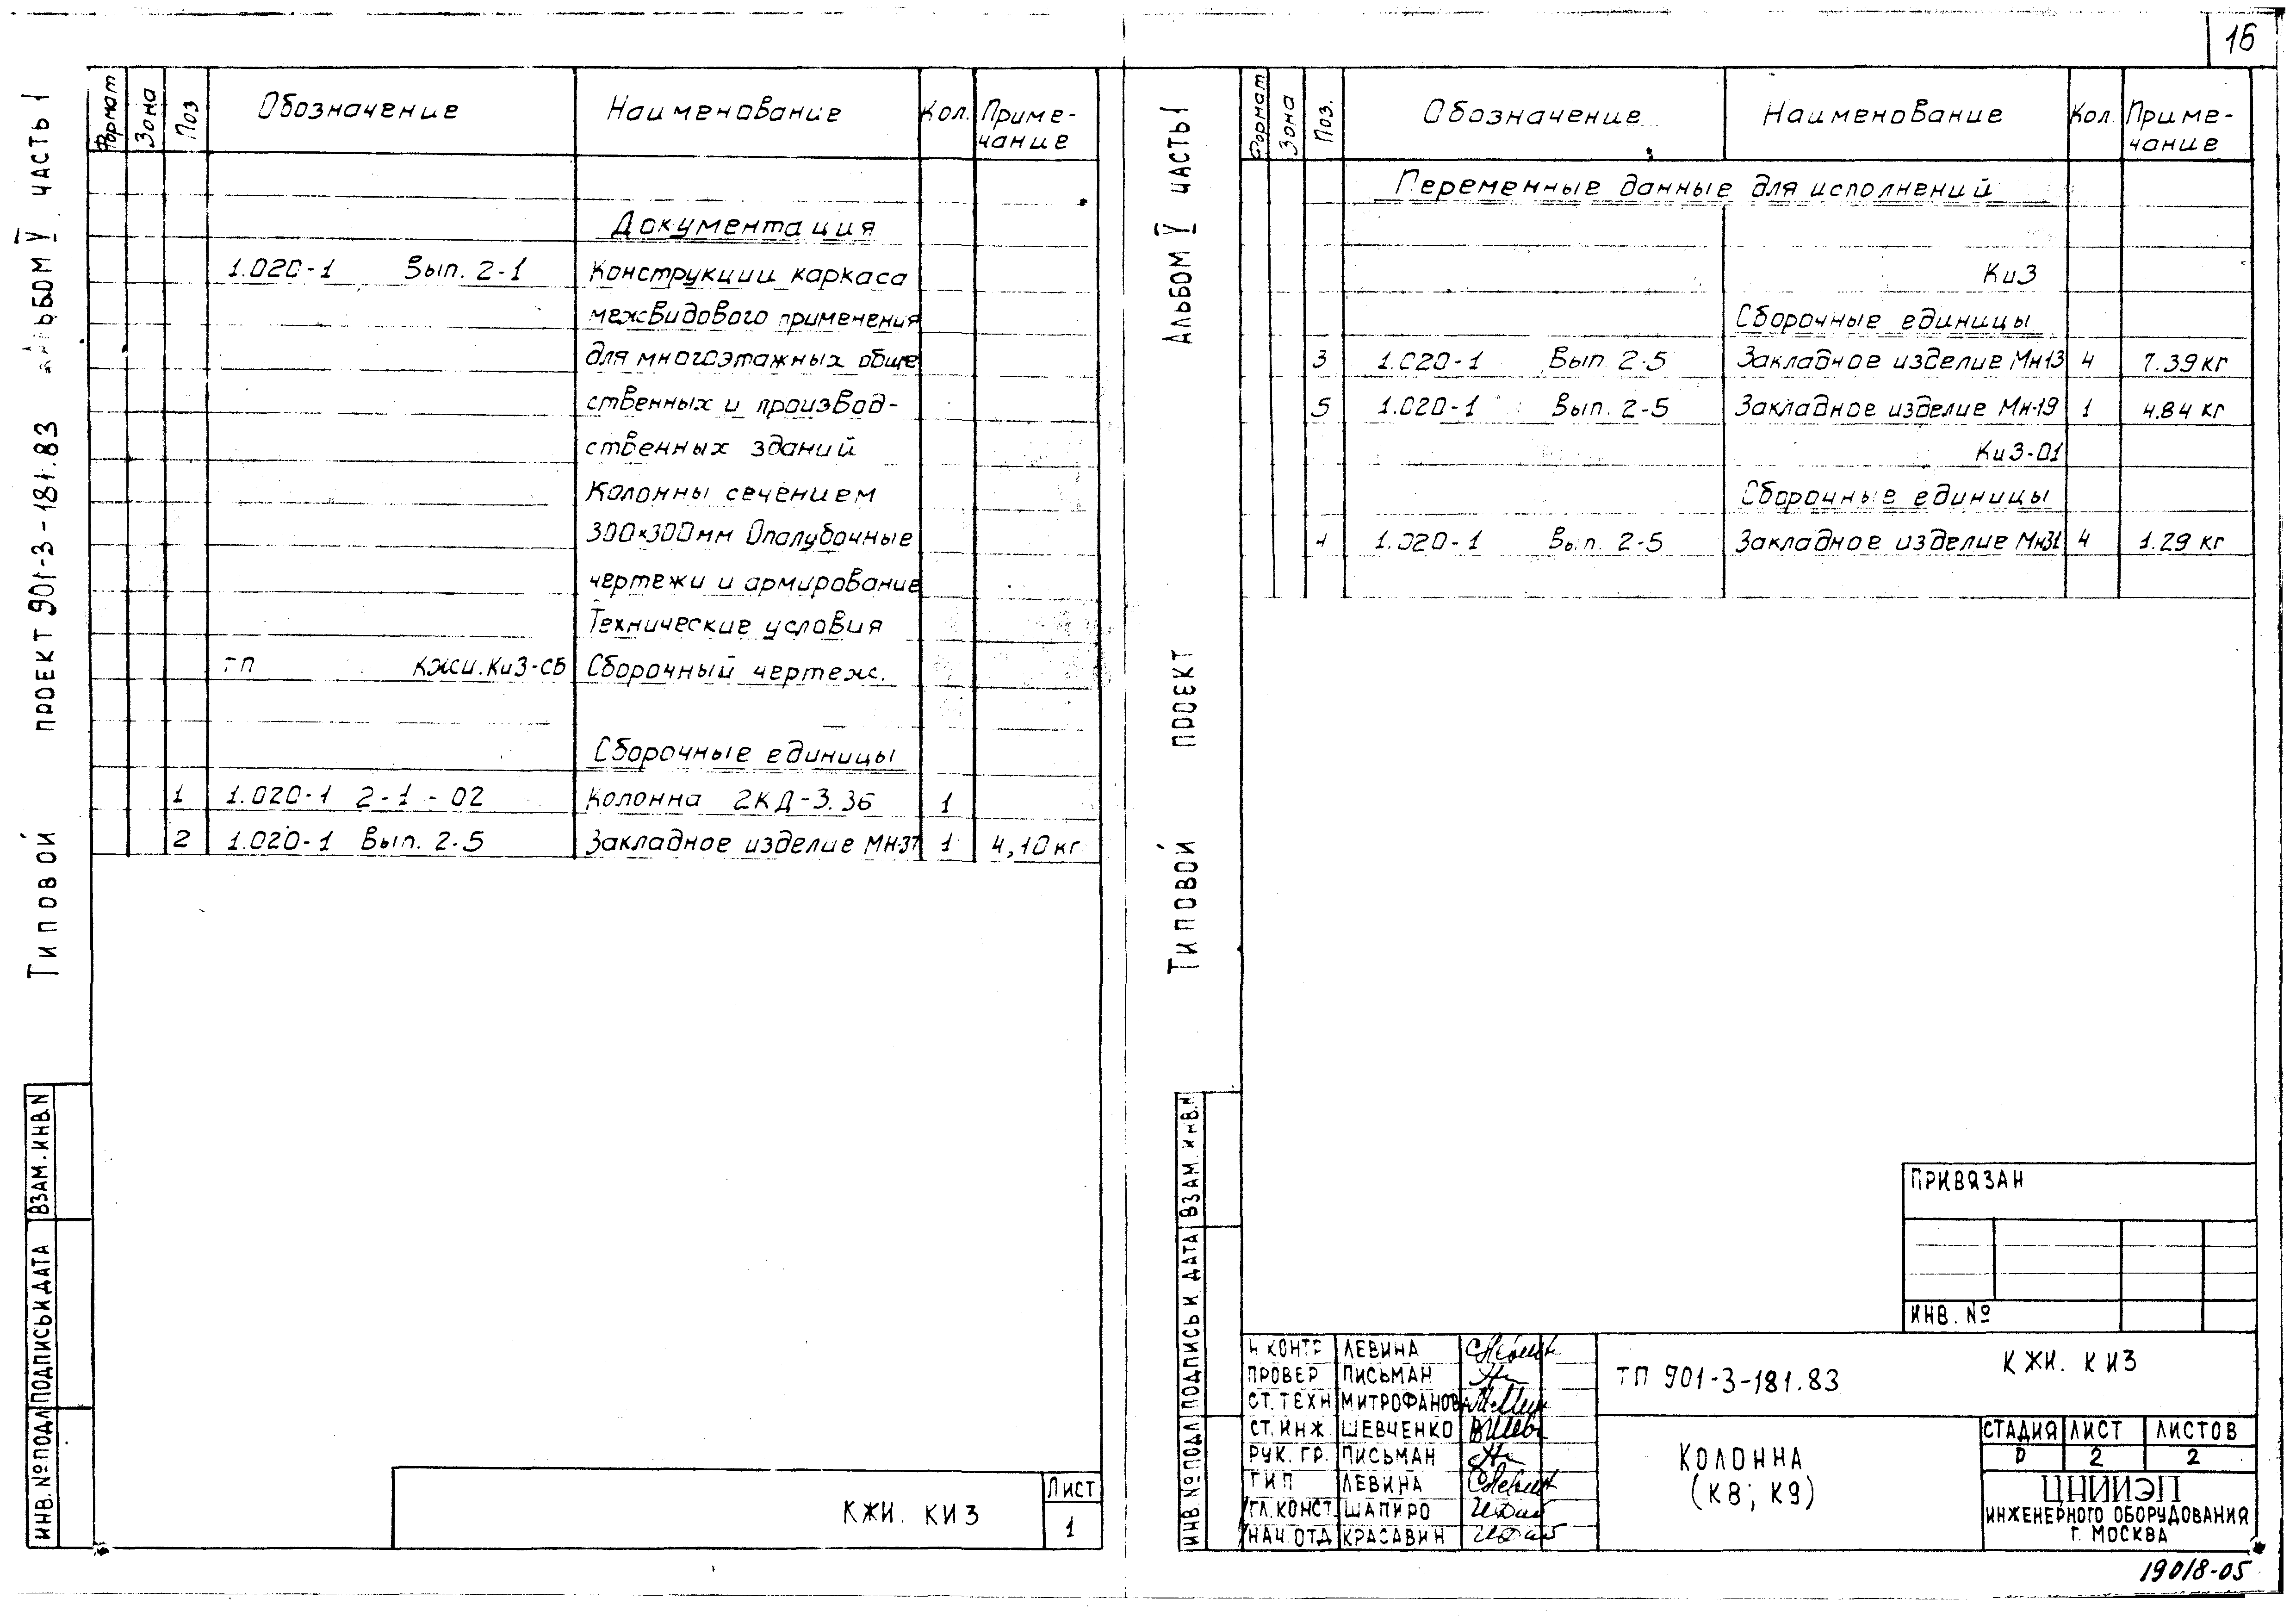 16
Типовой проект 901-3-181.83 Альбом V часть 1
Формат Зона Поз Обозначение Наименование Кол. Приме-
чание
Документация
1.020-1 Вып. 2-1 Конструкции каркаса
межвидового применения
для многоэтажных обще
ственных и производ-
ственных зданий
Колонны сечением
300×300мм Опалубочные
чертежи и армирование
Технические условия
ТП КЖИ.КиЗ-СБ Сборочный чертеж.
Сборочные единицы
1 1.020-1 2-1-02 Колонна 2КД-3.36 1
2 1.020-1 Вып. 2-5 Закладное изделие МН-37 1 4,10кг
ИНВ.№ПОДЛ ПОДПИСЬ И ДАТА ВЗАМ.ИНВ.N
КЖИ. КИЗ
Лист
1
Типовой проект Альбом V часть 1
Формат Зона Поз. Обозначение Наименование Кол. Приме-
чание
Переменные данные для исполнений
КиЗ
Сборочные единицы
3 1.020-1 Вып 2-5 Закладное изделие Мн-13 4 7.39кг
5 1.020-1 Вып. 2-5 Закладное изделие Мн-19 1 4.84 кг
КиЗ-01
Сборочные единицы
4 1.020-1 Вып. 2-5 Закладное изделие Мн31 4 1.29 кг
ИНВ.№ПОДЛ ПОДПИСЬ И ДАТА ВЗАМ. ИНВ.N
ПРИВЯЗАН
ИНВ. №
Н КОНТР ЛЕВИНА
ПРОВЕР ПИСЬМАН
СТ. ТЕХН МИТРОФАНОВА
СТ. ИНЖ. ШЕВЧЕНКО
РУК. ГР. ПИСЬМАН
ГИП ЛЕВИНА
ГЛ.КОНСТ. ШАПИРО
НАЧ ОТД КРАСАВИН
ТП 901-3-181.83 КЖИ. КИЗ
КОЛОННА
(К8; К9)
СТАДИЯ ЛИСТ ЛИСТОВ
Р 2 2
ЦНИИЭП
ИНЖЕНЕРНОГО ОБОРУДОВАНИЯ
Г. МОСКВА
19018-05